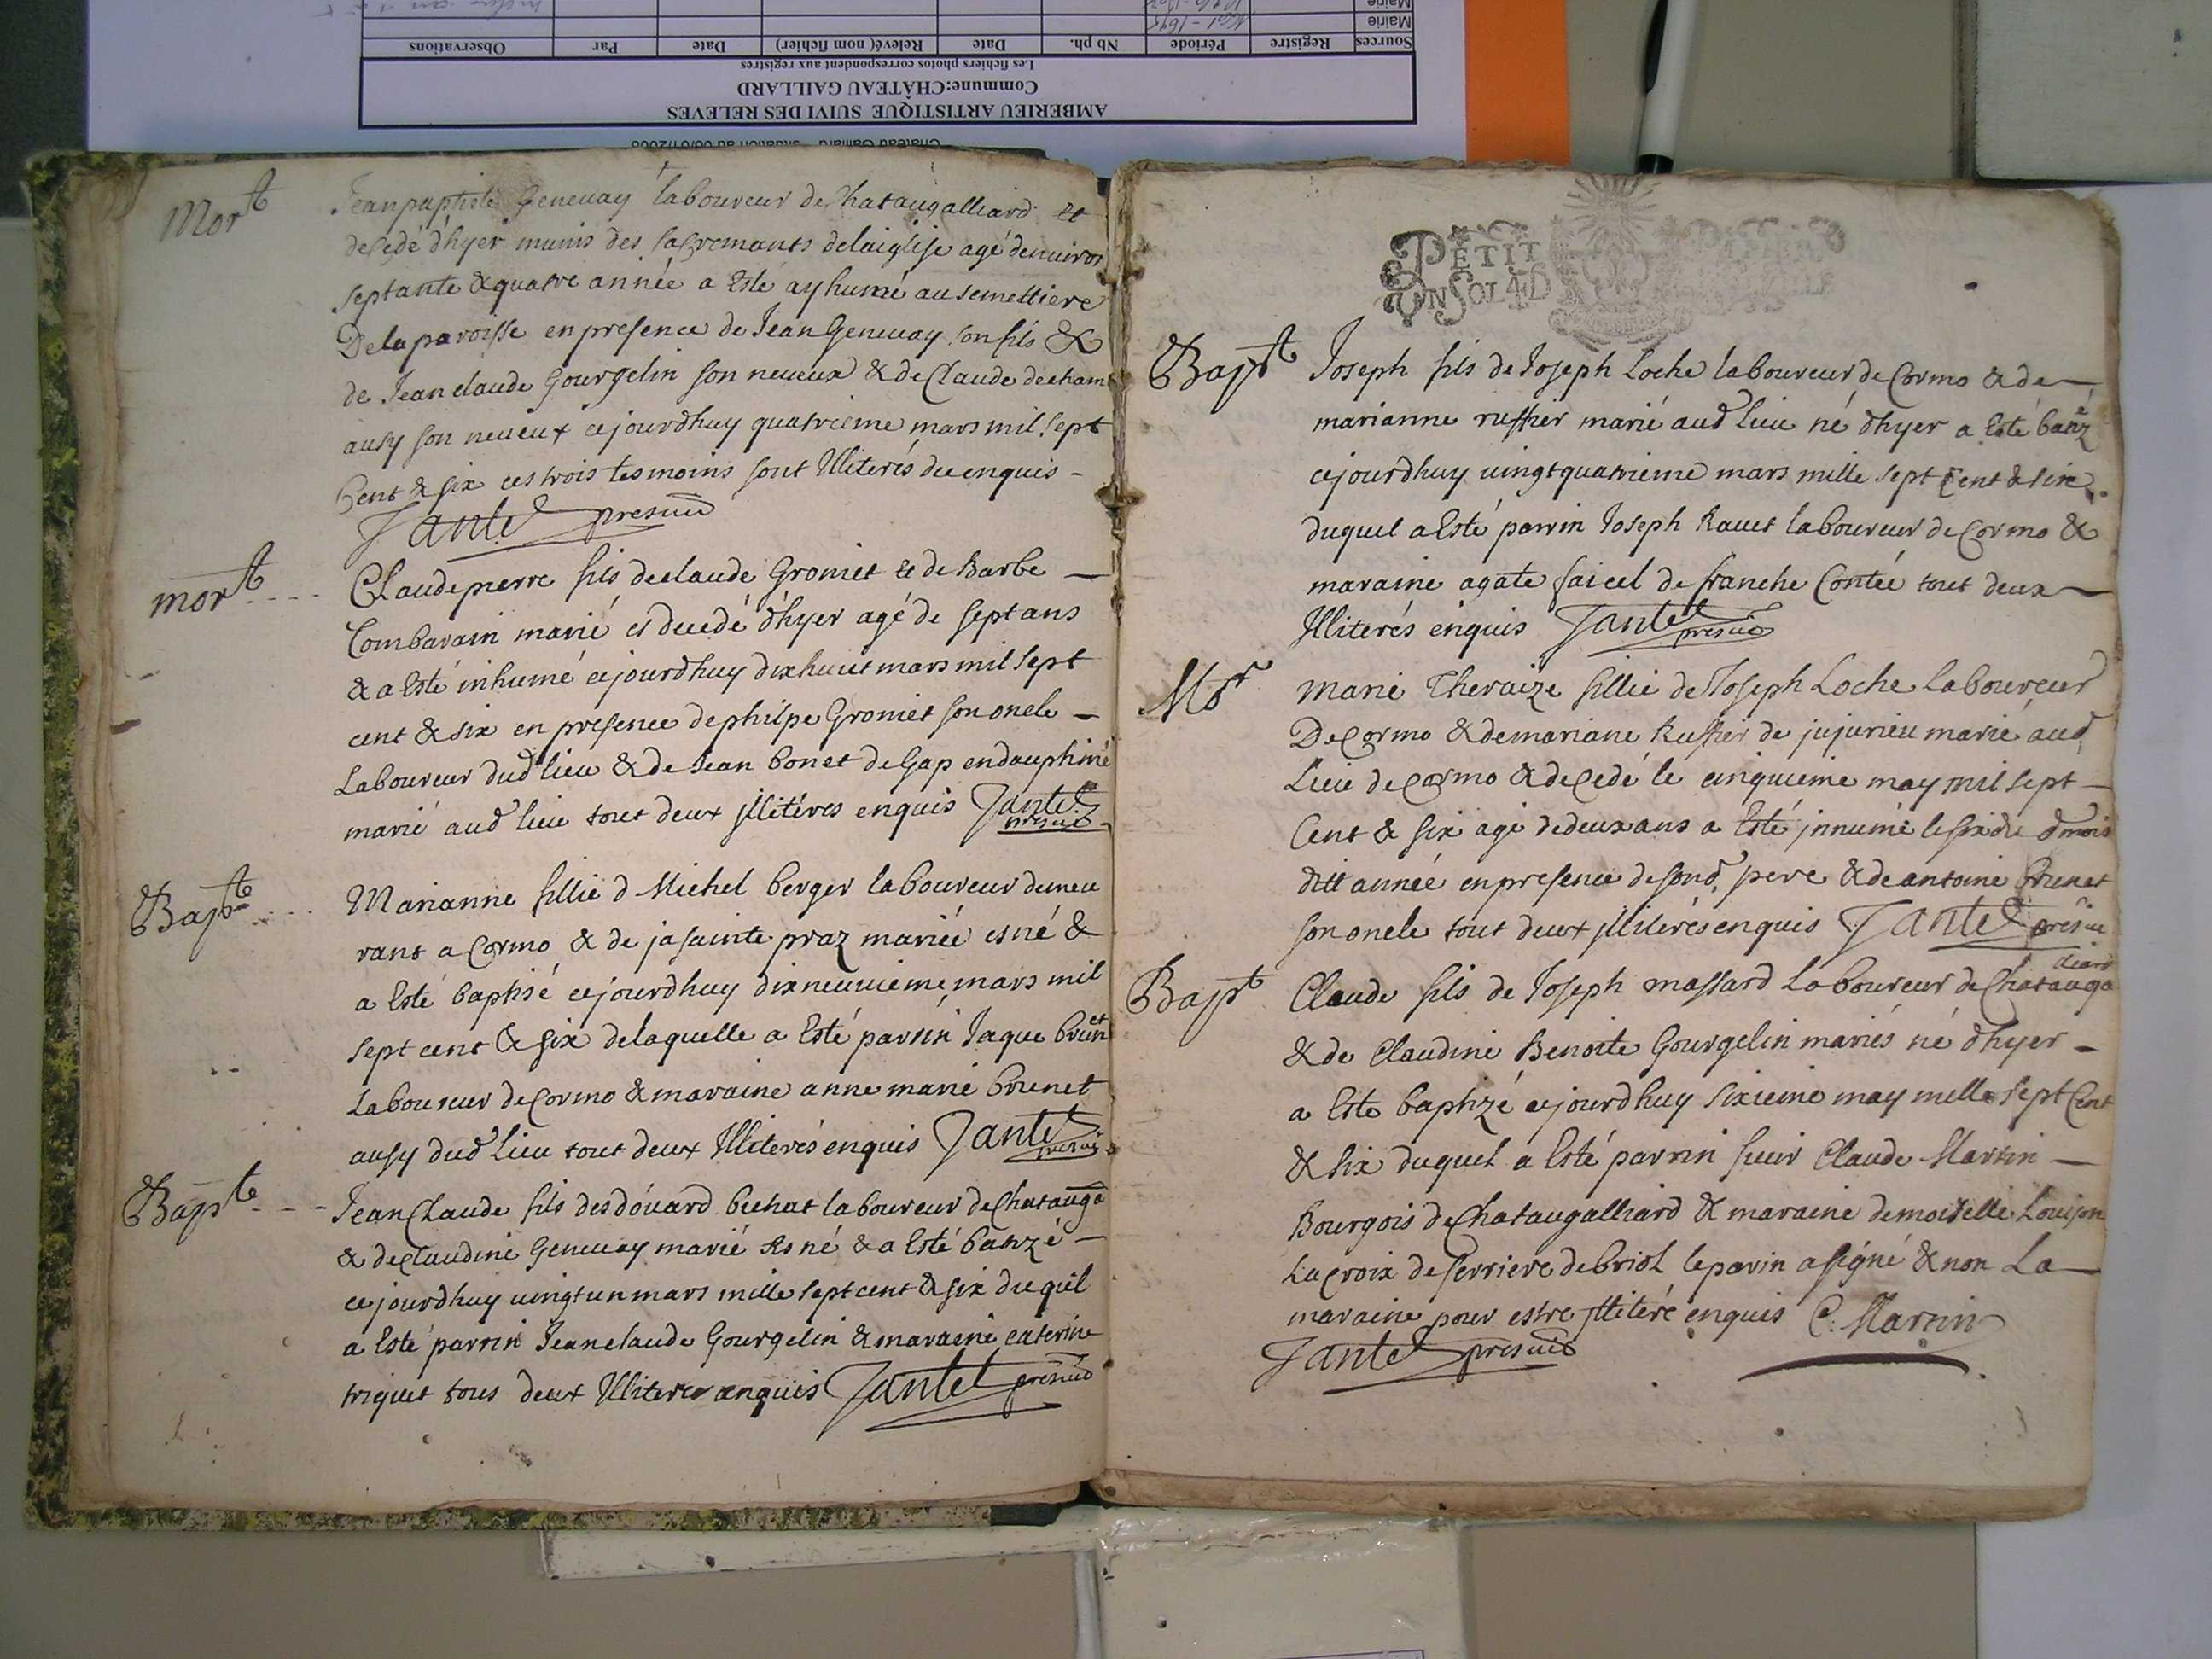 AMBERIEU ARTISTIQUE SUIVI DES RELEVES
Commune:CHÂTEAU GAILLARD
Les fichiers photos correspondent aux registres
Sources Registre Période Nb ph. Date Relevé (nom fichier) Date Par Observations
Mairie
Mairie
Mort
Jean paptiste Geneuay laboureur de Chataugalliard et
desedé d'hyer munis des sacremants de laiglise agé denuiron
septante & quatre année a Esté ayhumé au semettiere
De la paroisse en presence de Jean Geneuay son fils &
de Jean claude Gourgelin son neueux & de Claude decham
ausy son neueux cejourdhuy quatrieme mars mil sept
Cent & six ces trois tesmoins sont Illiterés de enquis -
Jantet presuic
mort
Claude pierre fils de claude Gromet et de Barbe —
Combarain marié es decedé d'hyer agé de sept ans
& a Esté inhumé cejourdhuy dixhuict mars mil sept
cent & six en presence de philpe Gromet son oncle —
Laboureur dud lieu & de Jean bonet de Gap en dauphiné
marié aud lieu tout deux Illitéres enquis Jantet
presuic
Bapte
Marianne fillie d Michel berger laboureur demeu
rant a Cormo & de jasainte praz mariéé es né &
a Esté baptisé cejourdhuy dixneuuieme mars mil
sept cent & six delaquelle a Esté parrin Jaque brunet
Laboureur de Cormo & maraine anne marie brunet
ausy dud Lieu tout deux Illiterés enquis Jantet
presuic
Bapte
Jean Claude fils desdóuard buhat laboureur de Chatauga
& de Claudine Geneuay marié es né & a Esté batizé —
cejourdhuy uingt un mars mille sept cent & six du quel
a Esté parrin Jean claude Gourgelin & maraine caterine
triquet tous deux Illiteres enquis Jantet presuic
PETIT PAPIER
UN SOL 4D LA FEUILLE
Bapt
Joseph fils de Joseph Loche laboureur de Cormo & de —
marianne ruffier marié aud lieu né d'hyer a Esté batiz
cejourdhuy uingt quatrieme mars mille sept Cent & sixe
duquel a Esté parrin Joseph Rauet laboureur de Cormo &
maraine agate faicel de franche Contée tout deux —
Illiterés enquis Jantet
presuic
Mor
Marie Theraize fillie de Joseph Loche laboureur
De Cormo & de mariane Ruffier de jujurieu marié aud
Lieu de Cormo & decedé le cinquieme may mil sept —
Cent & six agé de deux ans a Esté jnnumé le six du d mois
ditt année en presence de sond. pere & de antoine brunet
son oncle tout deux Illiterés enquis Jantet presuic
Bapt
lliard
Claude fils de Joseph massard Laboureur de Chatauga
& de Claudine Benoite Gourgelin mariés né d'hyer —
a Esté baptizé cejourdhuy sixieme may mille sept Cent
& six duquel a Esté parrin sieur Claude Martin —
Bourgois de Chataugalliard & maraine demoiselle Louison
Lacroix de serriere de briol le parin a signé & non La —
maraine pour estre Illiteré enquis C. Martin
Jantet presuic